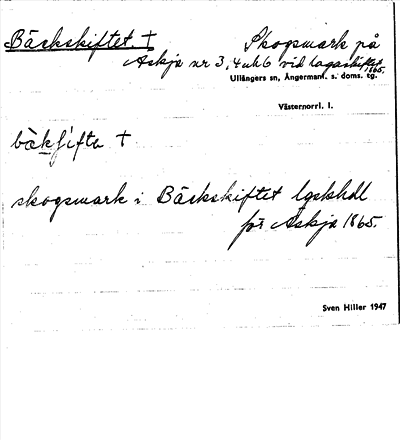 Bäckskiftet. † Skogsmark på
Askja nr 3, 4 och 6 vid laga skiftet 1865.
Ullångers sn, Ångermanl. s. doms. tg.
Västernorrl. l.
bäkʃifte †
skogsmark i Bäckskiftet lgskhdl
för Askja 1865.
Sven Hiller 1947